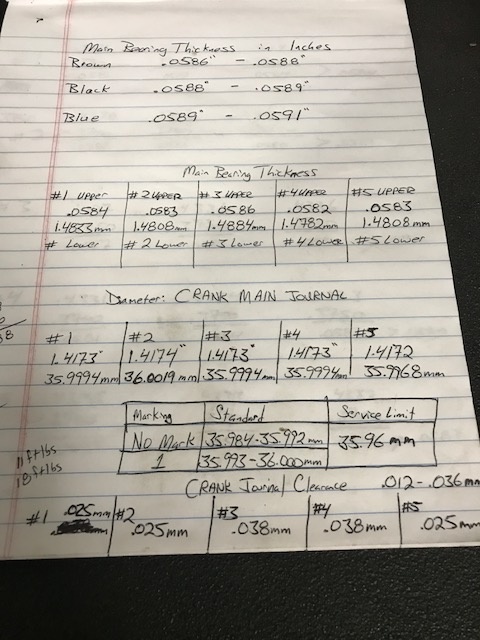 Main Bearing Thickness in Inches
Brown .0586" - .0588"
Black .0588" - .0589"
Blue .0589" - .0591"
Main Bearing Thickness
#1 UPPER #2 UPPER #3 UPPER #4 UPPER #5 UPPER
.0584 .0583 .0586 .0582 .0583
1.4833mm 1.4808mm 1.4884mm 1.4782mm 1.4808mm
# Lower #2 Lower #3 Lower #4 Lower #5 Lower
Diameter: CRANK MAIN JOURNAL
#1 #2 #3 #4 #5
1.4173" 1.4174" 1.4173" 1.4173" 1.4172
35.9994mm 36.0019mm 35.9994mm 35.9994mm 35.9968mm
Marking Standard Service Limit
No Mark 35.984-35.992mm 35.96mm
1 35.993-36.000mm
11 ft lbs
18 ft lbs
CRANK Journal Clearance .012-.036mm
#1 .025mm #2 .025mm #3 .038mm #4 .038mm #5 .025mm